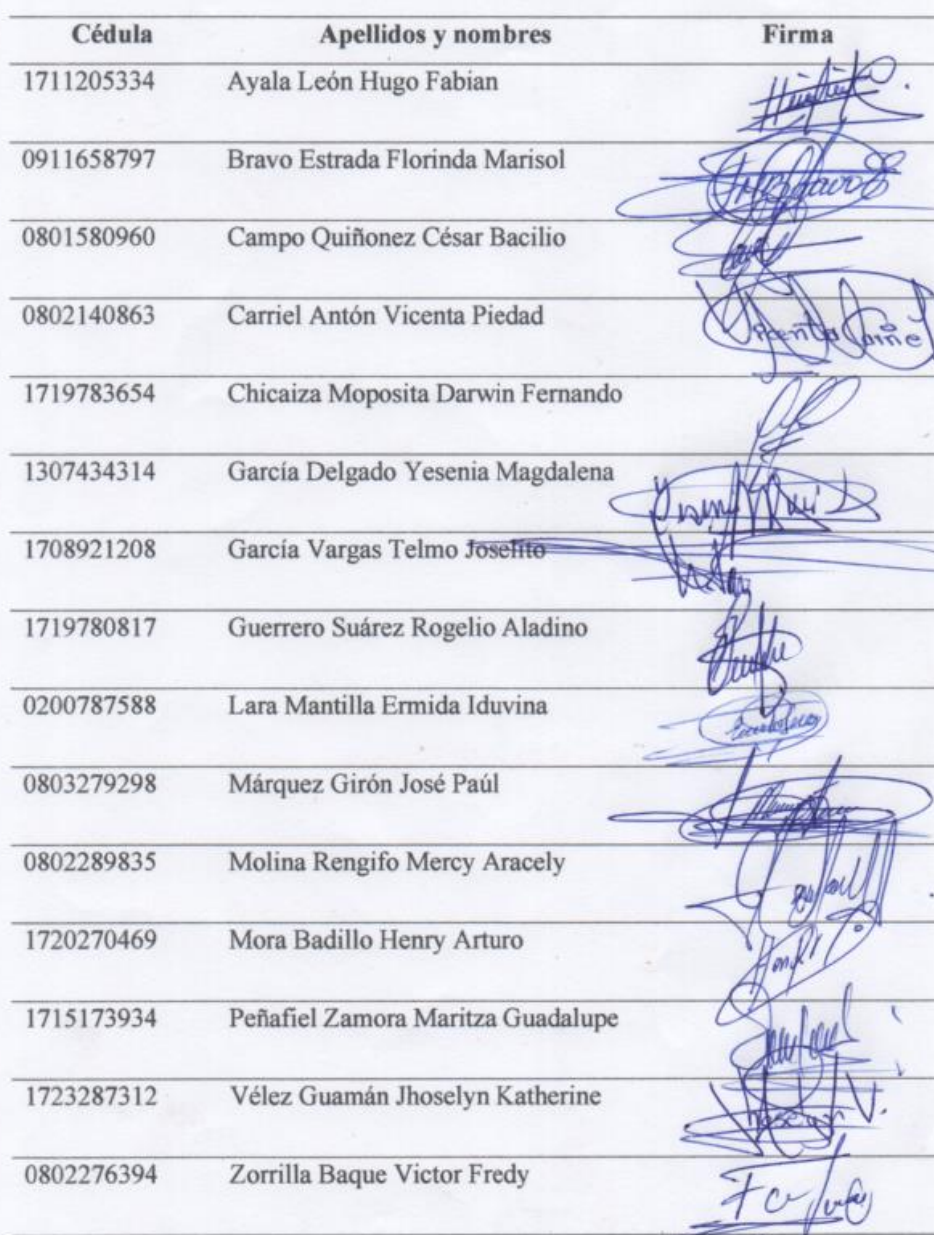 Cédula Apellidos y nombres Firma
1711205334 Ayala León Hugo Fabian
0911658797 Bravo Estrada Florinda Marisol
0801580960 Campo Quiñonez César Bacilio
0802140863 Carriel Antón Vicenta Piedad Vicenta
1719783654 Chicaiza Moposita Darwin Fernando
1307434314 García Delgado Yesenia Magdalena
1708921208 García Vargas Telmo Joselito
1719780817 Guerrero Suárez Rogelio Aladino
0200787588 Lara Mantilla Ermida Iduvina
0803279298 Márquez Girón José Paúl
0802289835 Molina Rengifo Mercy Aracely
1720270469 Mora Badillo Henry Arturo
1715173934 Peñafiel Zamora Maritza Guadalupe
1723287312 Vélez Guamán Jhoselyn Katherine
0802276394 Zorrilla Baque Victor Fredy